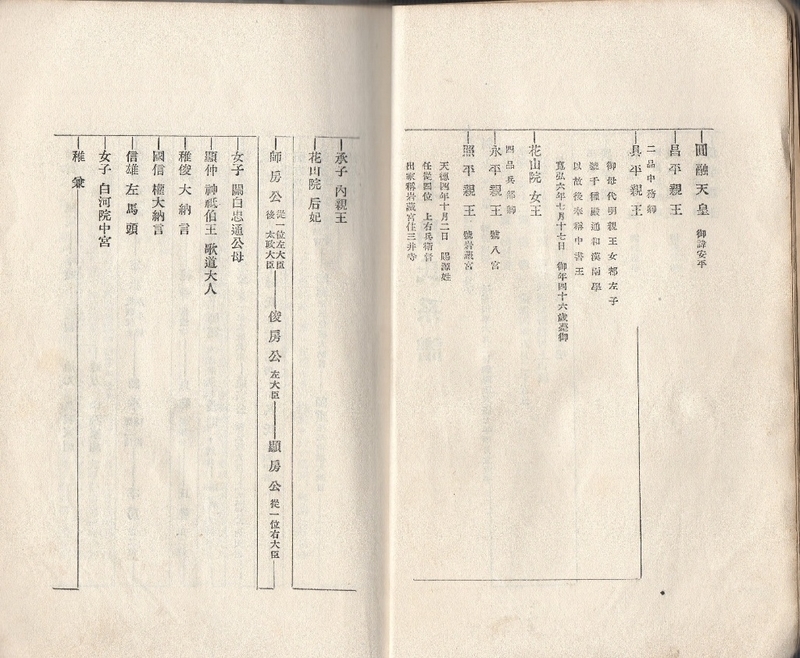 圓融天皇 御諱安平
昌平親王
具平親王
二品中務卿
御母代明親王女 左子
號千種殿通和漢兩學
以故後奉稱中書王
寬弘六年七月十七日 御年四十六歲薨御
花山院女王
四品兵部卿
永平親王 號八宮
照平親王 號岩藏宮
天德四年十月二日 賜源姓
任從四位 上右兵衛督
出家稱岩藏宮住三井寺
承子內親王
花山院 后妃
師房公 從一位左大臣 後 太政大臣 俊房公 左大臣 顯房公 從一位右大臣
女子 關白忠通公母
顯仲 神祇伯王 歌道大人
稚俊 大納言
國信 權大納言
信雄 左馬頭
女子 白河院中宮
稚兼